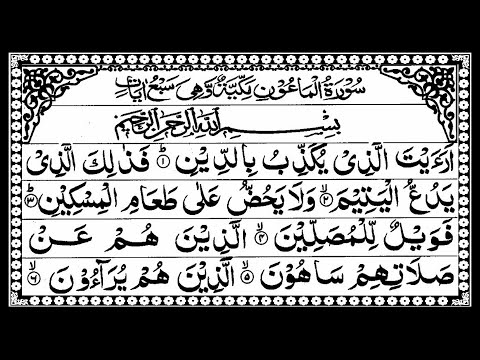 سُوْرَةُ الْمَاعُوْنِ مَكِّيَّةٌ وَّهِيَ سَبْعُ اٰيَاتٍ
بِسْمِ اللهِ الرَّحْمٰنِ الرَّحِيْمِ
اَرَءَيْتَ الَّذِىْ يُكَذِّبُ بِالدِّيْنِ ۝۱ فَذٰلِكَ الَّذِىْ
يَدُعُّ الْيَتِيْمَ ۝۲ وَلَا يَحُضُّ عَلٰى طَعَامِ الْمِسْكِيْنِ ۝۳ؕ
فَوَيْلٌ لِّلْمُصَلِّيْنَ ۝۴ الَّذِيْنَ هُمْ عَنْ
صَلَاتِهِمْ سَاهُوْنَ ۝۵ الَّذِيْنَ هُمْ يُرَآءُوْنَ ۝۶